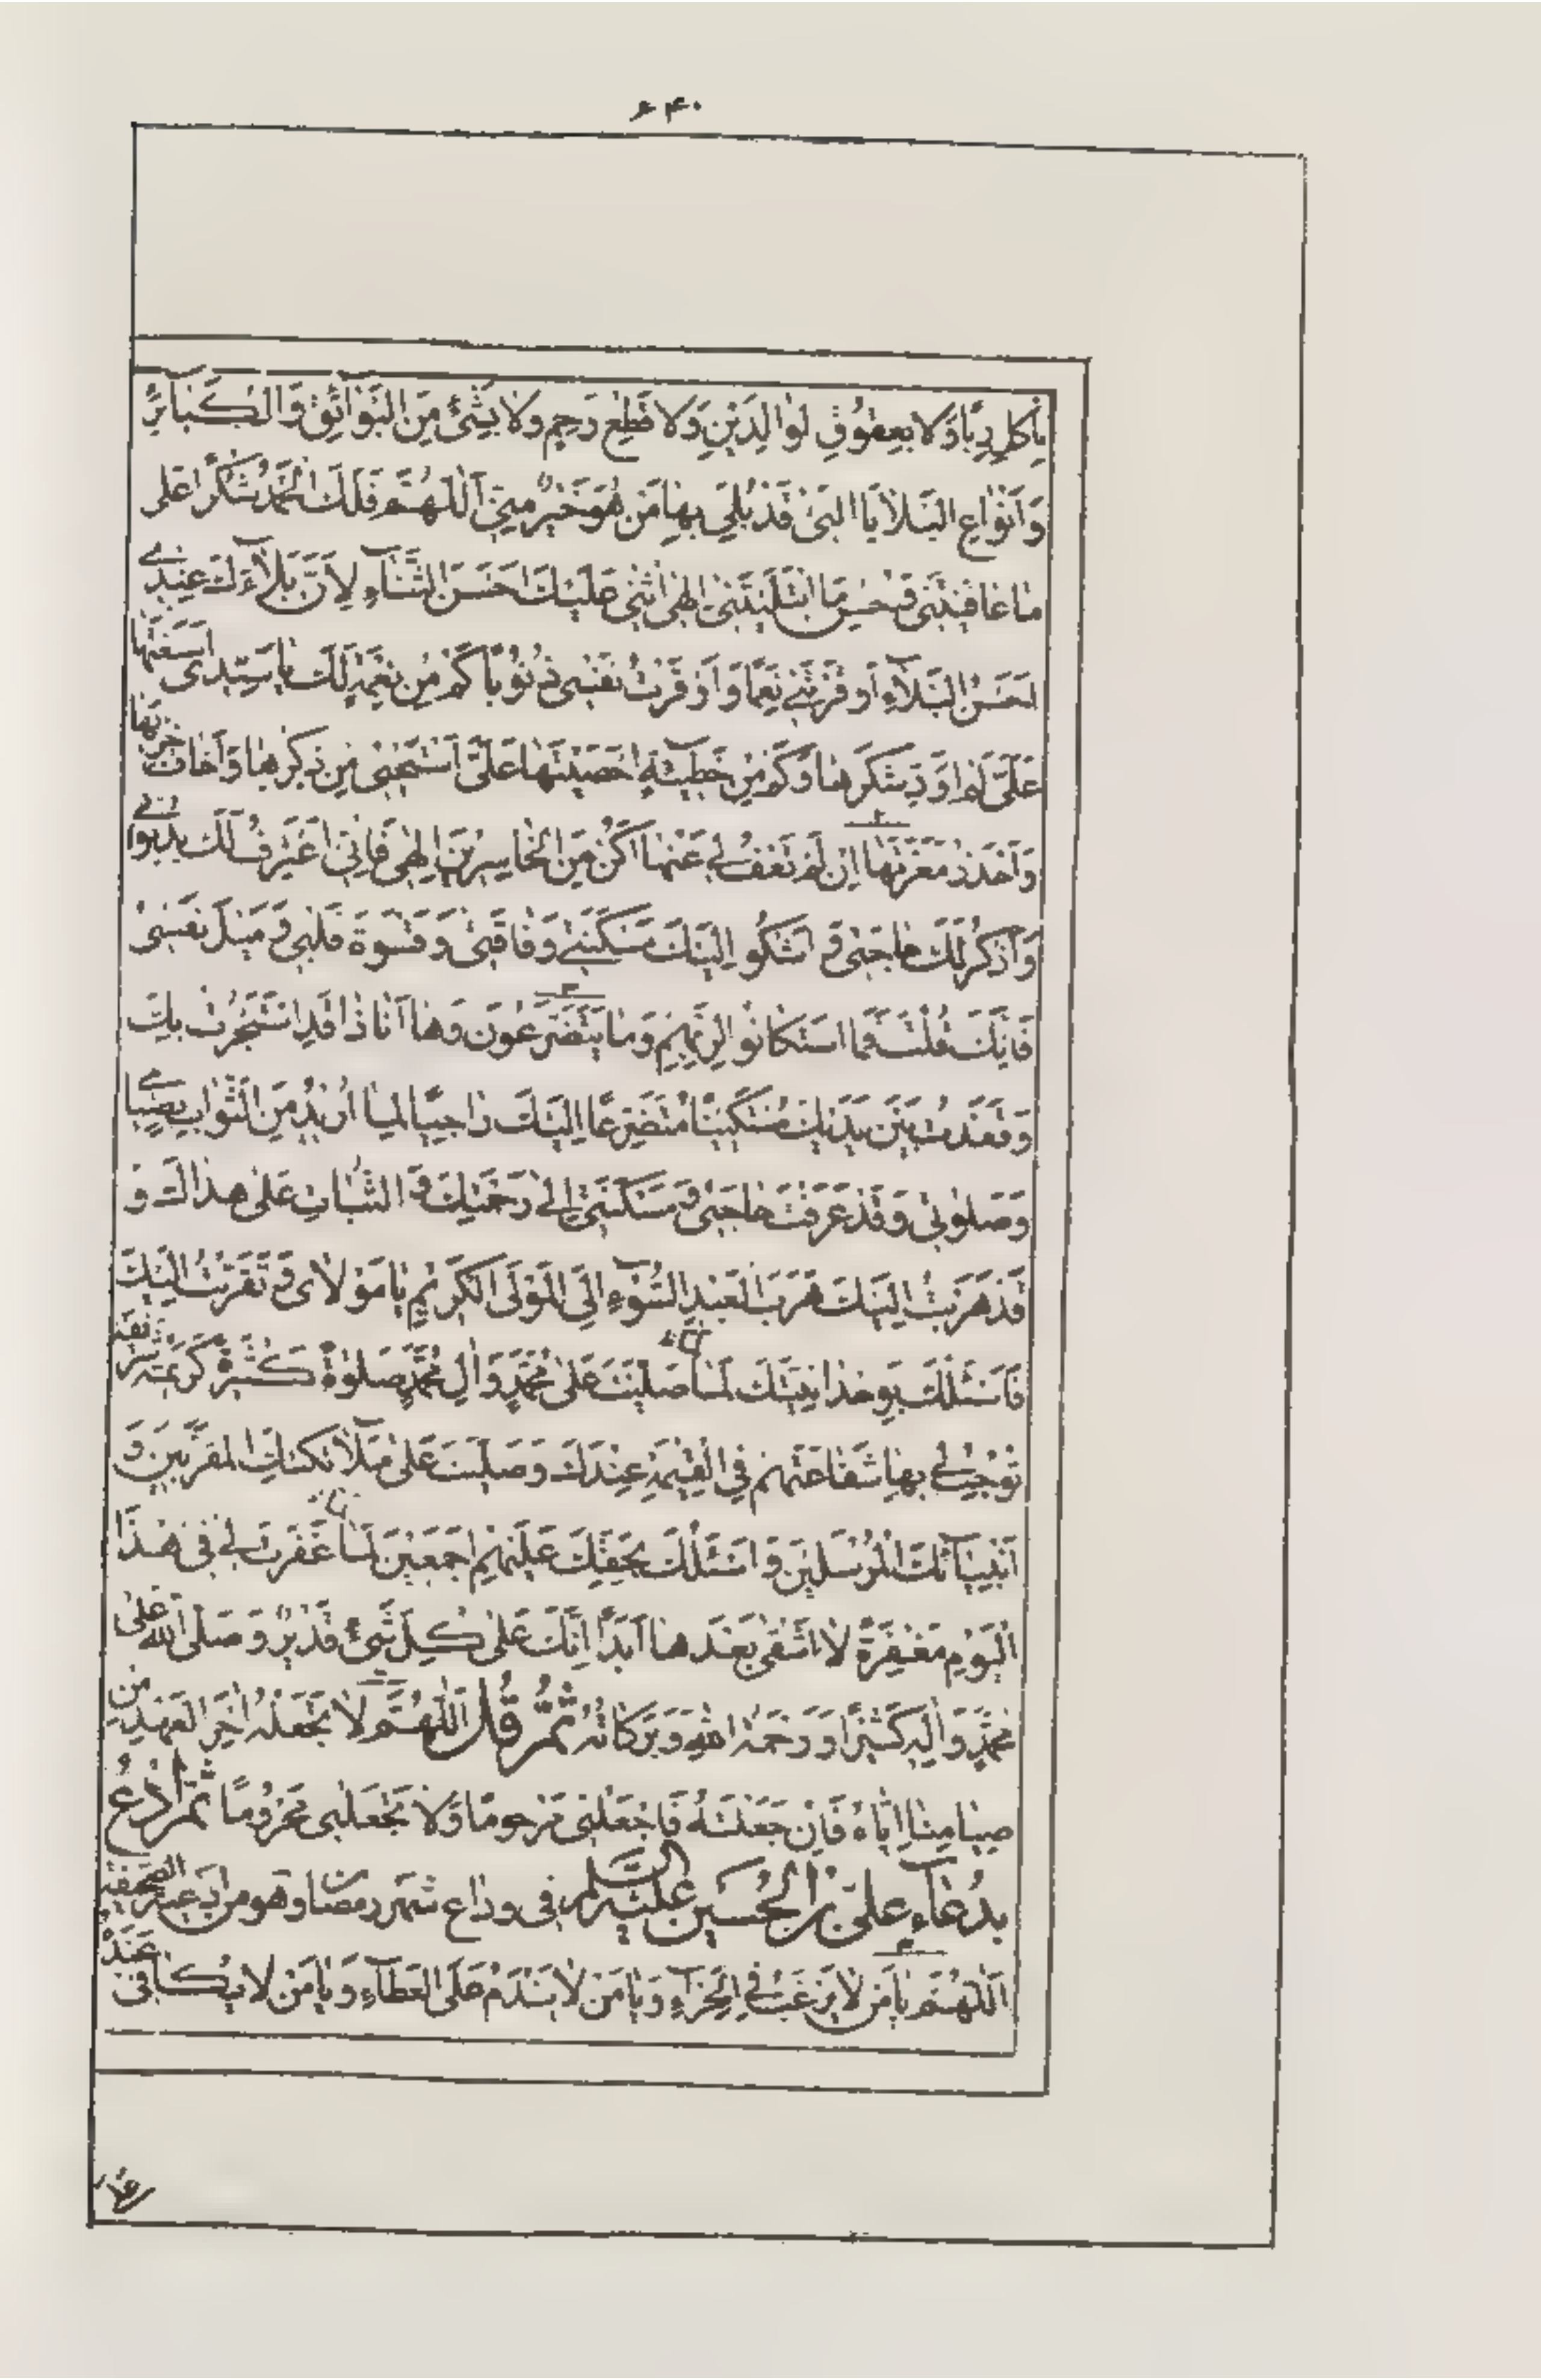 ۶۴۰
بِاَكْلِ رِبًا وَلَا بِعُقُوقِ لِوَالِدَيْنِ وَلَا قَطْعِ رَحِمٍ وَلَا بِشَىْءٍ مِنَ الْبَوَائِقِ وَالْكَبَآئِرِ
وَاَنْوَاعِ الْبَلَايَا الَّتِىْ قَدْ بُلِىَ بِهَا مَنْ هُوَ خَيْرٌ مِنِّىْ اَللّٰهُمَّ فَلَكَ الْحَمْدُ شُكْرًا عَلٰى
مَا عَافَيْتَنِىْ وَحُسْنِ مَا ابْتَلَيْتَنِىْ اِلٰهِىْ اُثْنِىْ عَلَيْكَ اَحْسَنَ الثَّنَآءِ لِاَنَّ بَلَآءَكَ عِنْدِىْ
اَحْسَنُ الْبَلَآءِ اَوْقَرْتَنِىْ نِعَمًا وَاَوْقَرْتُ نَفْسِىْ ذُنُوْبًا كَمْ مِنْ نِعْمَةٍ لَكَ يَا سَيِّدِىْ اَسْبَغْتَهَا
عَلَىَّ لَمْ اُؤَدِّ شُكْرَهَا وَكَمْ مِنْ خَطِيْئَةٍ اَحْصَيْتَهَا عَلَىَّ اَسْتَحْيِىْ مِنْ ذِكْرِهَا وَاَخَافُ خِزْيَهَا
وَاَحْذَرُ مَعَرَّتَهَا اِنْ لَمْ تَعْفُ لِىْ عَنْهَا اَكُنْ مِنَ الْخَاسِرِيْنَ اِلٰهِىْ فَاِنِّىْ اَعْتَرِفُ لَكَ بِذُنُوْبِىْ
وَاَذْكُرُ لَكَ حَاجَتِىْ وَ اَشْكُوْ اِلَيْكَ مَسْكَنَتِىْ وَفَاقَتِىْ وَ قَسْوَةَ قَلْبِىْ وَ مَيْلَ نَفْسِىْ
فَاِنَّكَ قُلْتَ فَمَا اسْتَكَانُوْا لِرَبِّهِمْ وَمَا يَتَضَرَّعُوْنَ وَهَا اَنَا ذَا قَدِ اسْتَجَرْتُ بِكَ
وَقَعَدْتُ بَيْنَ يَدَيْكَ مُسْتَكِيْنًا مُتَضَرِّعًا اِلَيْكَ رَاجِيًا لِمَا اُرِيْدُ مِنَ الثَّوَابِ بِصِيَامِىْ
وَصَلٰوتِىْ وَ قَدْ عَرَفْتَ حَاجَتِىْ وَ مَسْكَنَتِىْ اِلٰى رَحْمَتِكَ وَ الثَّبَاتِ عَلٰى هُدَاكَ وَ
قَدْ هَرَبْتُ اِلَيْكَ هَرَبَ الْعَبْدِ السُّوْٓءِ اِلَى الْمَوْلَى الْكَرِيْمِ يَا مَوْلَاىَ وَ تَقَرَّبْتُ اِلَيْكَ
فَاَسْئَلُكَ بِوَحْدَانِيَّتِكَ لَمَّا صَلَّيْتَ عَلٰى مُحَمَّدٍ وَاٰلِ مُحَمَّدٍ صَلٰوةً كَثِيْرَةً كَرِيْمَةً شَرِيْفَةً
تُوْجِبُ لِىْ بِهَا شَفَاعَتَهُمْ فِى الْقِيٰمَةِ عِنْدَكَ وَصَلَّيْتَ عَلٰى مَلَآئِكَتِكَ الْمُقَرَّبِيْنَ وَ
اَنْبِيَآئِكَ الْمُرْسَلِيْنَ وَ اَسْئَلُكَ بِحَقِّكَ عَلَيْهِمْ اَجْمَعِيْنَ لَمَّا غَفَرْتَ لِىْ فِىْ هٰذَا
الْيَوْمِ مَغْفِرَةً لَا اَشْقٰى بَعْدَهَا اَبَدًا اِنَّكَ عَلٰى كُلِّ شَىْءٍ قَدِيْرٌ وَ صَلَّى اللّٰهُ عَلٰى
مُحَمَّدٍ وَاٰلِهٖ كَثِيْرًا وَ رَحْمَةُ اللّٰهِ وَبَرَكَاتُهٗ ثُمَّ قُلْ اَللّٰهُمَّ لَا تَجْعَلْهُ اٰخِرَ الْعَهْدِ مِنْ
صِيَامِنَا اِيَّاهُ فَاِنْ جَعَلْتَهُ فَاجْعَلْنِىْ مَرْحُوْمًا وَلَا تَجْعَلْنِىْ مَحْرُوْمًا ثُمَّ ادْعُ
بِدُعَآءِ عَلِىِّ بْنِ الْحُسَيْنِ عَلَيْهِ السَّلَامُ فى وداع شهر رمضان وهو من ادعية الصحيفة
اَللّٰهُمَّ يَا مَنْ لَا يَرْغَبُ فِى الْجَزَآءِ وَيَا مَنْ لَا يَنْدَمُ عَلَى الْعَطَآءِ وَ يَا مَنْ لَا يُكَافِىْ عَبْدَهٗ